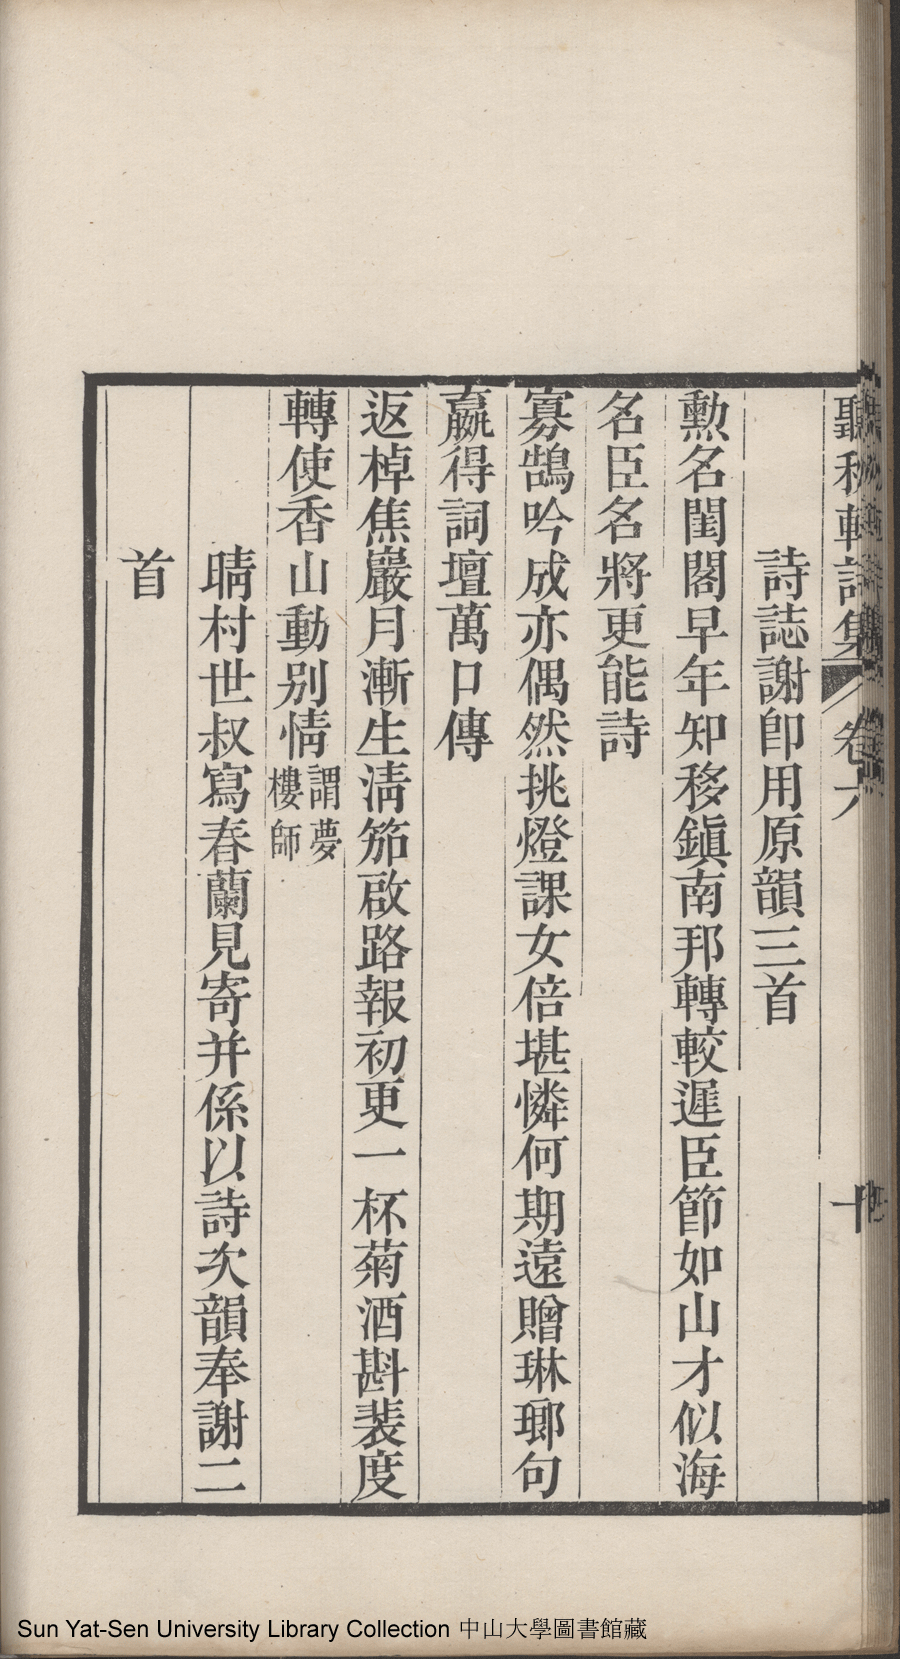 聽秋軒詩集 卷六 十
詩誌謝即用原韻三首
勲名閨閣早年知移鎭南邦轉較遲臣節如山才似海
名臣名將更能詩
寡鵠吟成亦偶然挑燈課女倍堪憐何期遠贈琳瑯句
嬴得詞壇萬口傳
返棹焦巖月漸生淸笳啟路報初更一杯菊酒斟裴度
轉使香山動別情謂夢樓師
晴村世叔寫春蘭見寄并係以詩次韻奉謝二
首
Sun Yat-Sen University Library Collection 中山大學圖書館藏